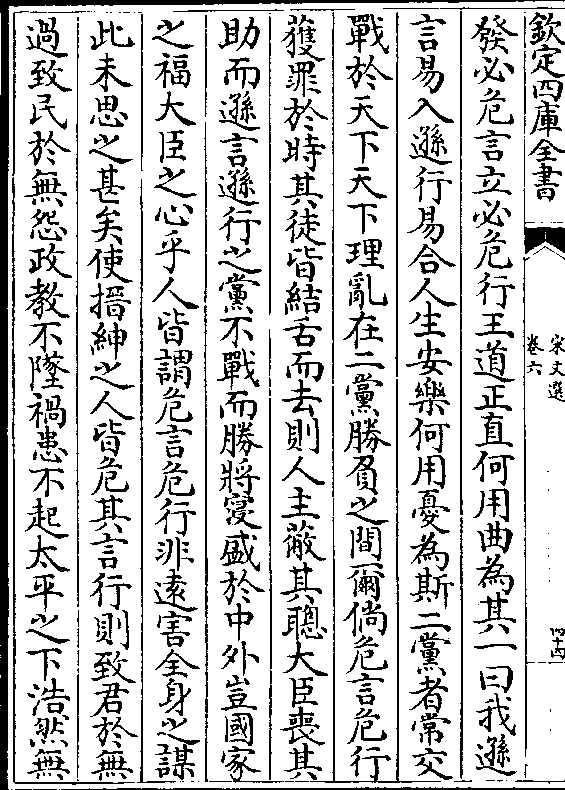 欽定四庫全書
宋文選
卷六
四十四
發必危言立必危行王道正直何用曲為其一曰我遜
言易入遜行易合人生安樂何用憂為斯二黨者常交
戰於天下天下理亂在二黨勝負之間爾倘危言危行
獲罪於時其徒皆結舌而去則人主蔽其聰大臣喪其
助而遜言遜行之黨不戰而勝將寖盛於中外豈國家
之福大臣之心乎人皆謂危言危行非遠害全身之謀
此未思之甚矣使搢紳之人皆危其言行則致君於無
過致民於無怨政教不墜禍患不起太平之下浩然無